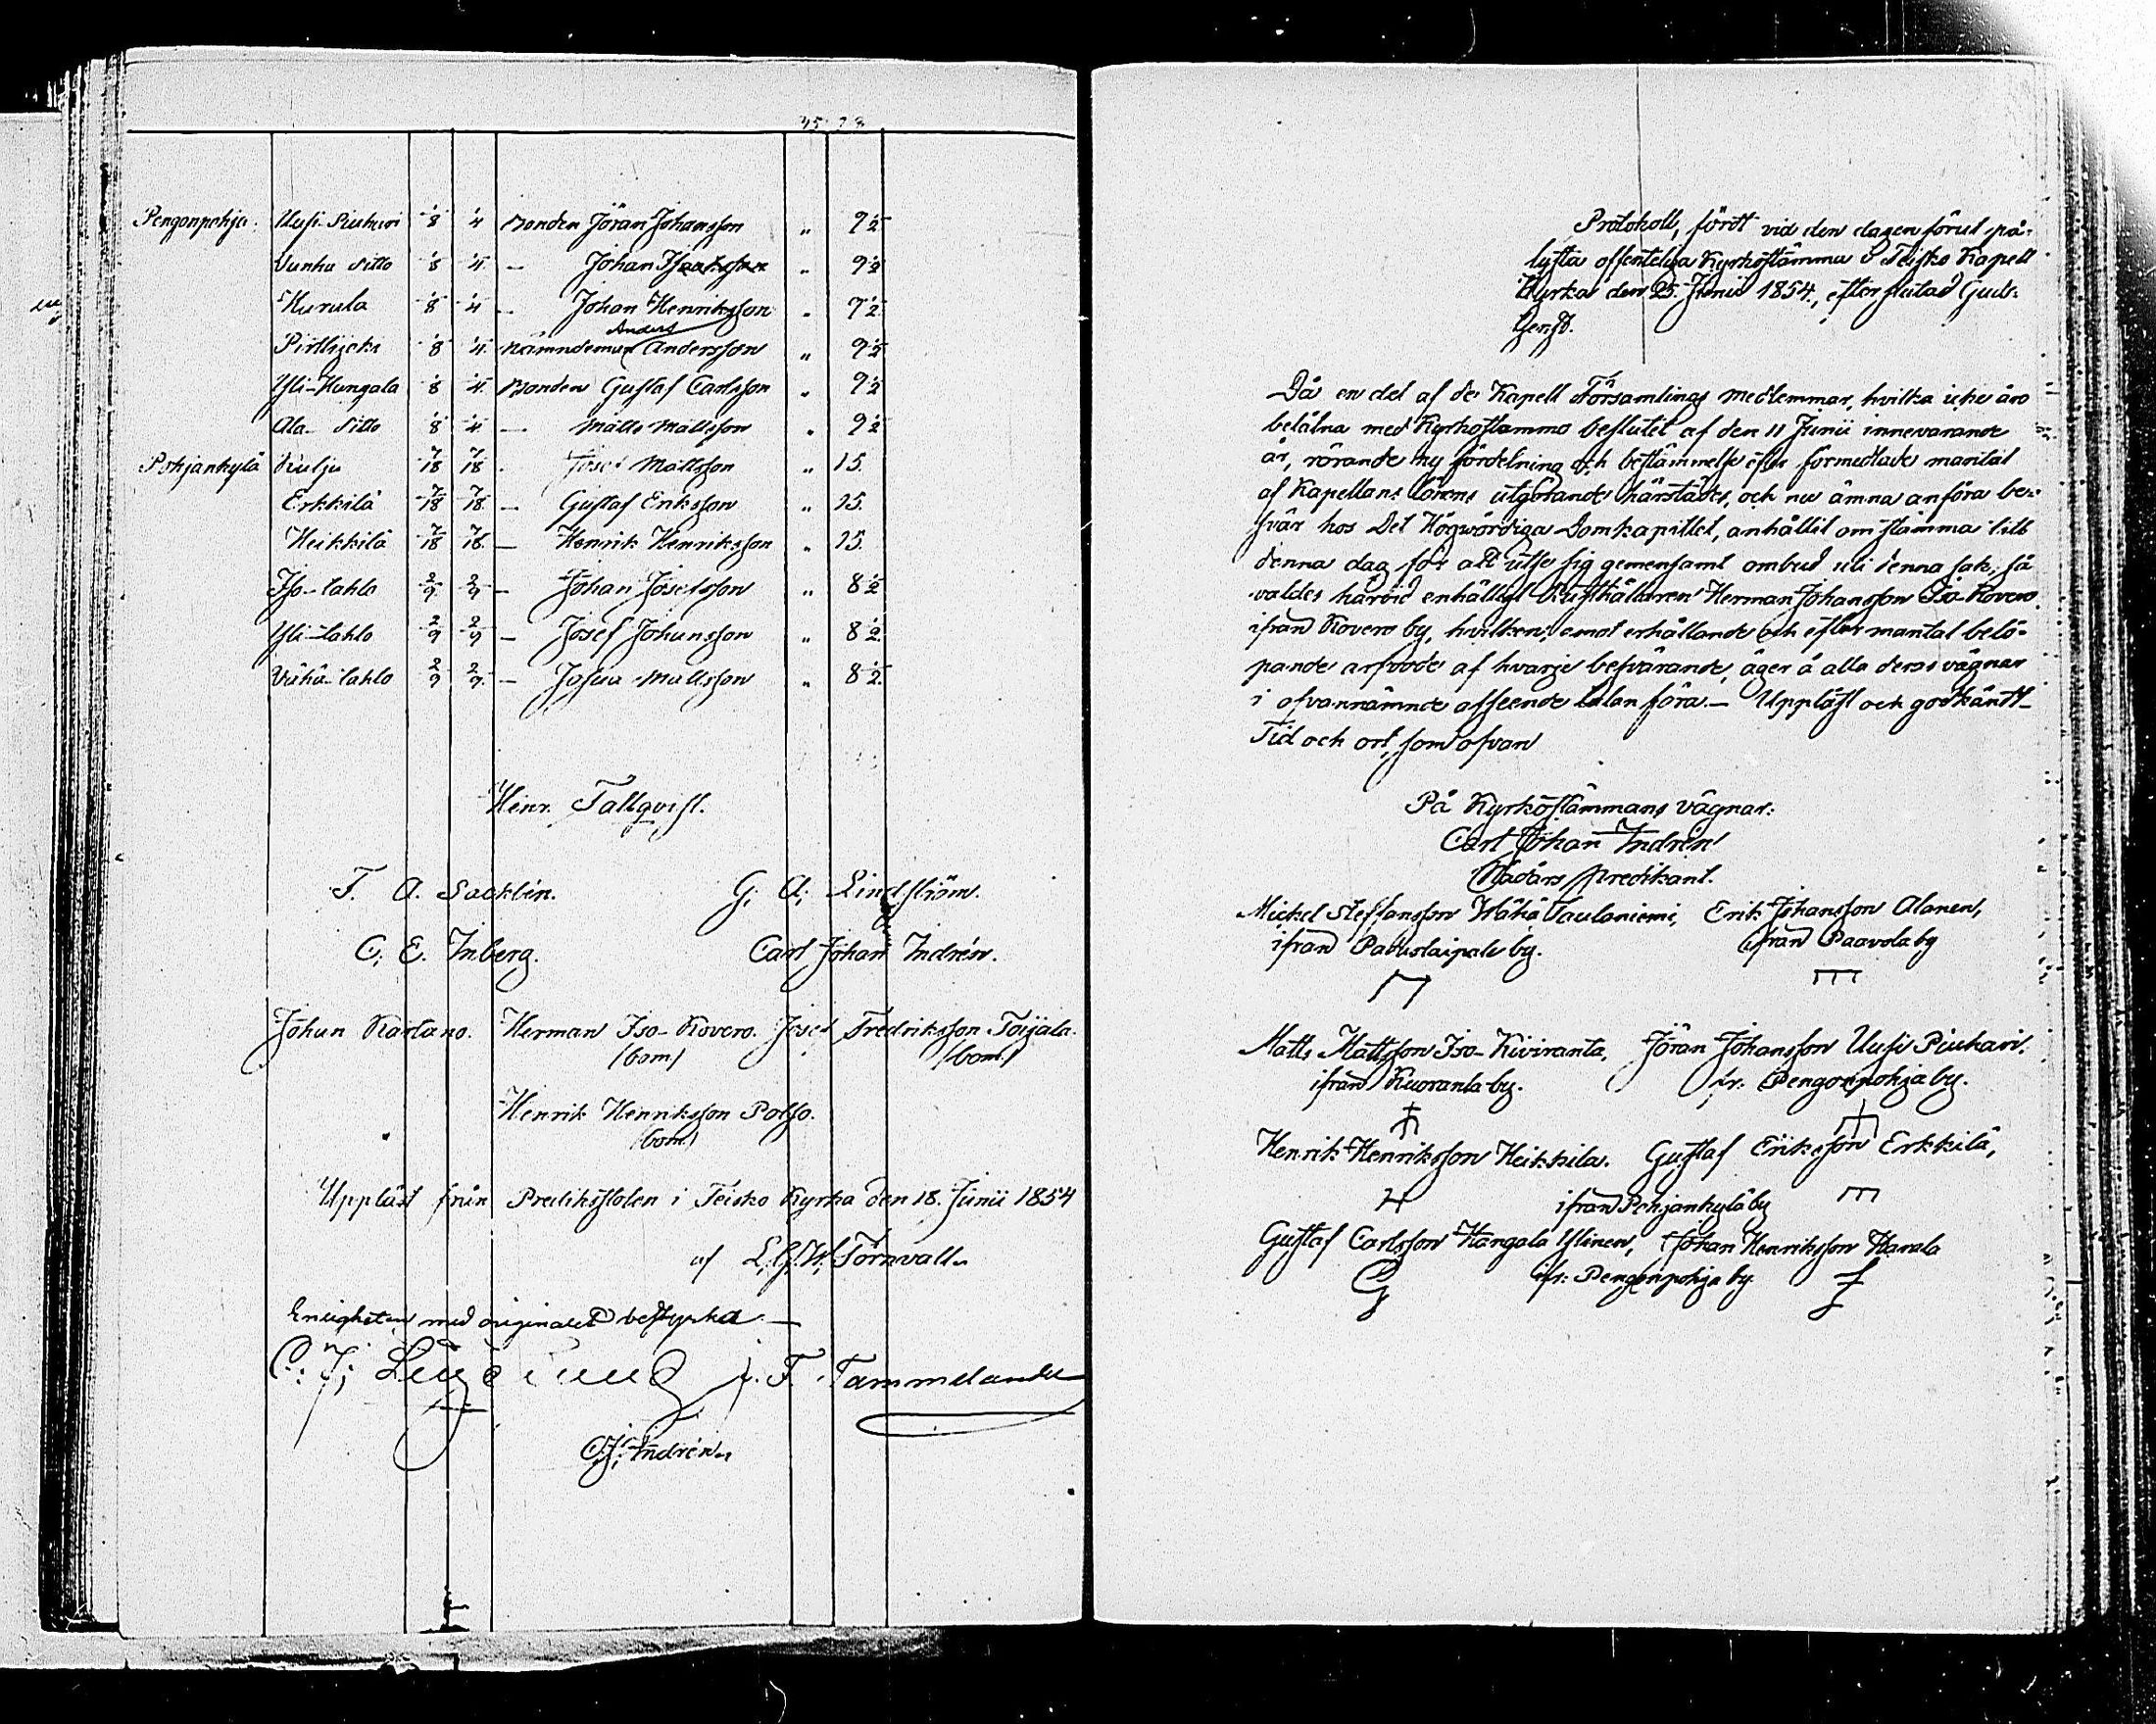 45 78
Pengonpohja. Uusi-Piuhari 1/8 1/4 Bonden Jöran Johansson " 9 1/2
Vanha ditto 1/8 1/4 — Johan Isaaksson " 9 1/2
Harala 1/8 1/4 — Johan Henriksson " 7 1/2
Anders
Pirttijoki 1/8 1/4 Nämndeman Andersson " 9 1/2
Yli-Hangala 1/8 1/4 Bonden Gustaf Carlsson " 9 1/2
Ala- ditto 1/8 1/4 — Matts Mattsson " 9 1/2
Pohjankylä Kulju 7/18 7/18 — Josef Mattsson " 15.
Erkkilä 7/18 7/18 — Gustaf Eriksson " 15.
Heikkilä 7/18 7/18 — Henrik Henriksson " 15.
Iso-Lahlo 2/9 2/9 — Johan Josefsson " 8 1/2
Yli-Lahlo 2/9 2/9 — Josef Johansson " 8 1/2
Vähä-Lahlo 2/9 2/9 — Josua Mattsson " 8 1/2
Henr. Tallqvist.
F. A. Sacklén. G. A. Lindström.
C. E. Inberg. Carl Johan Indrén.
Johan Kartano. Herman Iso-Kovero. Josef Fredriksson Toijala.
(bom.) (bom.)
Henrik Henriksson Polso.
(bom.)
Uppläst från Prediksstolen i Teisko Kyrka den 18. Junii 1854
af L. G. W. Törnvall.
Enligheten med originalet bestyrka —
C. J. Lindlund J. F. Tammelander
C. J. Indrén.
Protokoll, fördt vid den dagen förut på-
lysta offentelga Kyrkostämma i Teisko Kapell
Kyrka den 25. Junii 1854, efter slutad Guds-
tjenst.
Då en del af de Kapell Församlings medlemmar, hvilka icke äro
belåtna med Kyrkostämmo beslutet af den 11 Junii innevarande
år, rörande ny fördelning och bestämmelse efter förmedlade mantal
af Kapellans lönens utgörande härstädes, och nu ämna anföra be-
svär hos Det Högwördiga Domkapitlet, anhållit om stämma till
denna dag för att utse sig gemensamt ombud uti denna sak; så
valdes härvid enhälligt Rusthållaren Herman Johansson Iso-Kovero
ifrån Kovero by, hvilken, emot erhållande och efter mantal belö-
pande arfvode af hvarje besvärande, äger å alla deras vägnar
i ofvannämnde afseende talan föra. — Uppläst och godkändt —
Tid och ort, som ofvan
På Kyrkostämmans vägnar:
Carl Johan Indrén
Nådårs Predikant.
Michel Steffansson Wähä Taulaniemi, Erik Johansson Alanen,
ifrån Padustaipale by. ifrån Paavola by
Matts Mattsson Iso-Kiviranta, Jöran Johansson Uusi Piuhari.
ifrån Kuoranta by. fr. Pengonpohja by.
Henrik Henriksson Heikkilä. Gustaf Eriksson Erkkilä,
ifrån Pohjankylä by
Gustaf Carlsson Hangala Ylinen, Johan Henriksson Harala
ifr: Pengonpohja by.